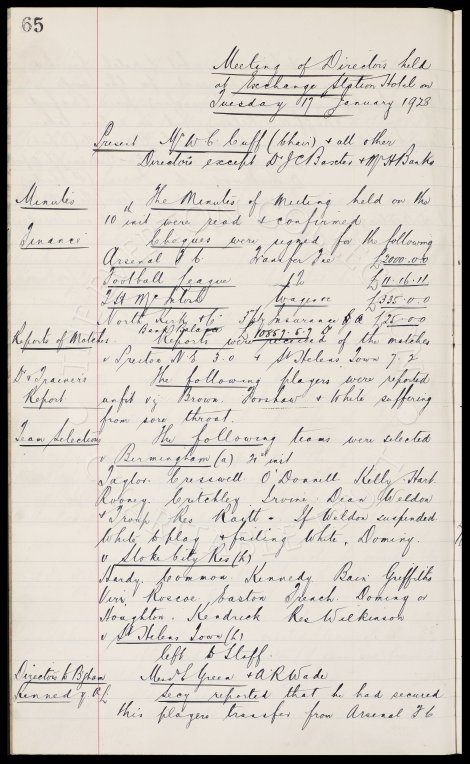 65
Meeting of Directors held
at Exchange Station Hotel on
Tuesday 17 January 1928
Present Mr W. C. Cuff (Chair) & all other
Directors except Dr J C Baxter & Mr H Banks
Minutes The Minutes of Meeting held on the
10 inst were read & confirmed
Finance Cheques were signed for the following
Arsenal F C. Transfer Fee £2000.0.0
Football League £11.16.11
T. H. McIntosh Wages £335.0.0
North & Co Insurance £25.0.0
Bank Balance 10869.6.7
Reports of Matches. Reports were received of the matches
v Preston N. E 3.0 & St Helens Town 7.2
Dr & Trainers The following players were reported
Report unfit viz Brown. Forshaw & White suffering
from sore throat.
Team Selections The following teams were selected
v. Birmingham (a) 21st inst
Taylor. Cresswell O'Donnell. Kelly. Hart.
Rooney. Critchley Irvine. Dean. Weldon
& Troup Res Raitt. If Weldon suspended
White to play & failing White, Dominy.
v Stoke City Res (h)
Hardy. Common. Kennedy. Bain Griffiths
Virr. Roscoe. Easton French. Dominy or
Houghton. Kendrick Res Wilkinson
v St Helens Town (h)
left to Staff.
Directors to B'ham Messrs Green & A. R. Wade
Secy reported that he had secured
this players transfer from Arsenal F. C